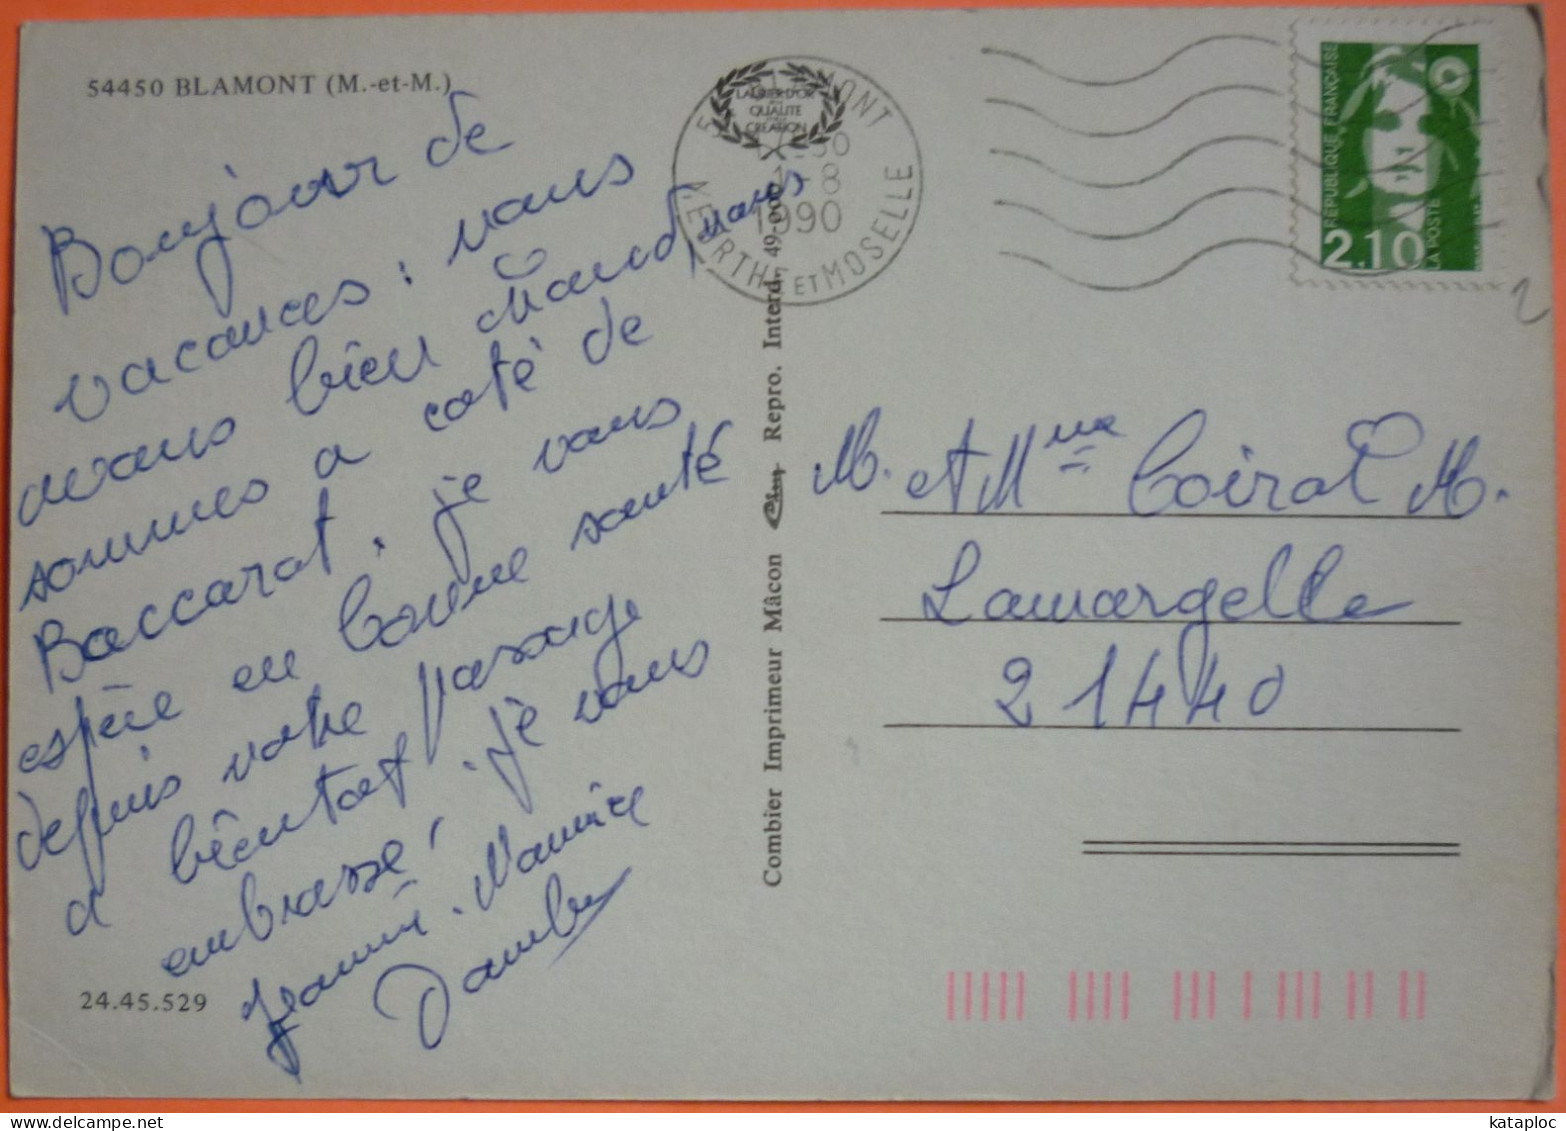 54450 BLAMONT (M.-et-M.)
Bonjour de
vacances : nous
avons bien chaud, nous
sommes a coté de
Baccarat, je vous
espère en bonne santé
depuis votre passage
a bientot. je vous
embrasse,
Jeannine. Maurice
24.45.529
LAURIER D'OR
QUALITE
CREATION
MEURTHE ET MOSELLE
8
1990
Combier Imprimeur Mâcon
Repro. Interd.
REPUBLIQUE FRANÇAISE
2.10
LA POSTE
M. et Mme Coirot M.
Lamargelle
21440
kataploc